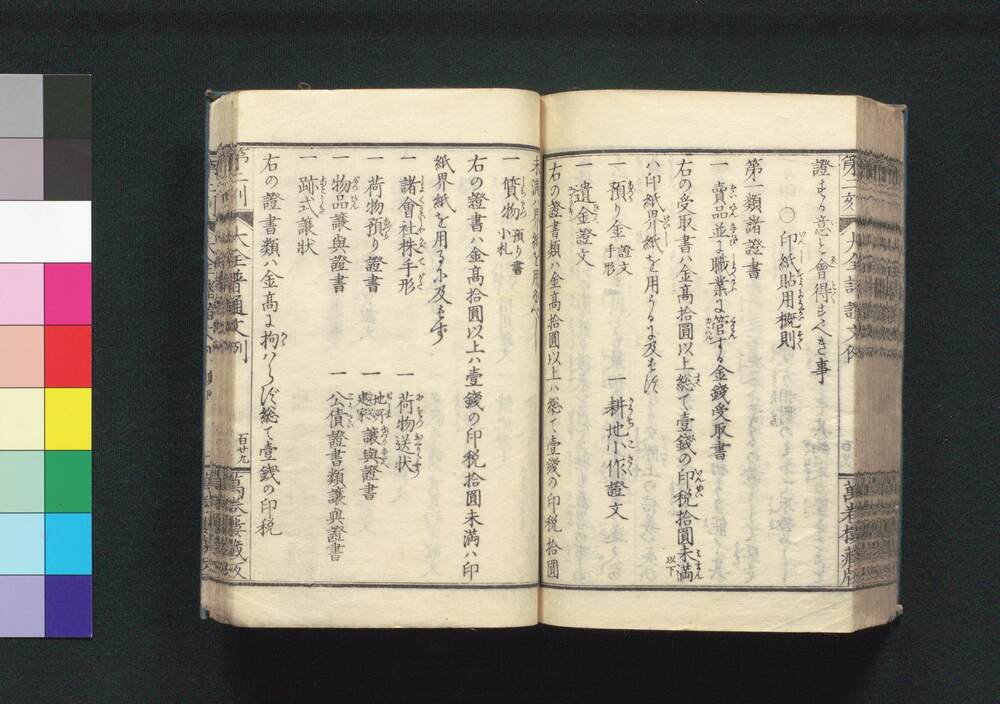 證する意と會得すべき事
〇印紙貼用概則
第一類諸證書
一 賣品並に職業に管する金錢受取書
右の受取書ハ金高拾圓以上総て壹錢の印税拾圓未満以下
ハ印紙界紙を用うるに及ばず
一 預り金 證文 手形 一 耕地小作證文
一 遺金證文
右の證書類ハ金高拾圓以上ハ総て壹錢の印税 拾圓
未満ハ界紙を用ふべし
一 質物 預り書 小札
右の證書ハ金高拾圓以上ハ壹錢の印税拾圓未満ハ印
紙界紙を用るに及ばず
一 諸會社株手形 一 荷物送状
一 荷物預り證書 一 地所 建家 讓與證書
一 物品讓與證書 一 公債證書類讓與證書
一 跡式讓状
右の證書類ハ金高に拘ハらず総て壹錢の印税
第二刻 大全普通文例 百廿九